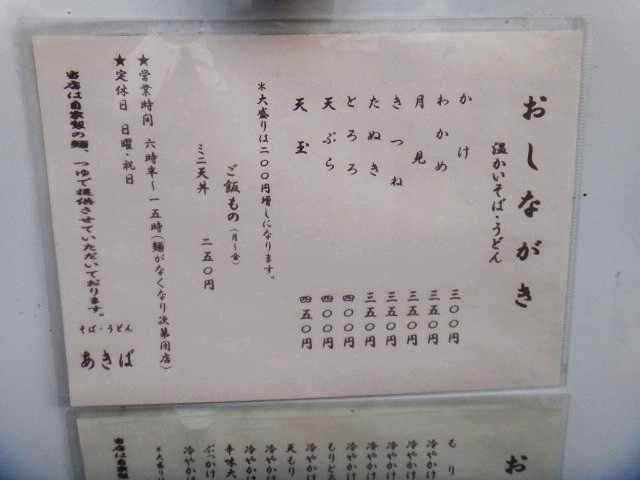 おしながき
温かいそば・うどん
かけ 三〇〇円
わかめ 三五〇円
月見 三五〇円
きつね 三五〇円
たぬき 三五〇円
とろろ 四〇〇円
天ぷら 四〇〇円
天玉 四五〇円
＊大盛りは二〇〇円増しになります。
ご飯もの（月～金）
ミニ天丼 二五〇円
★営業時間 六時半～一五時（麺がなくなり次第閉店）
★定休日 日曜・祝日
当店は自家製の麺、つゆで提供させていただいております。
そば・うどん
あきば
お
もり
冷やかけ
冷やかけ
冷やかけ
冷やかけ
冷やかけ
もりとろ
冷やかけ
天もり
冷やかけ
冷やかけ
辛味大
ぶっかけ
冷やかけ
＊大盛り
当店は自家